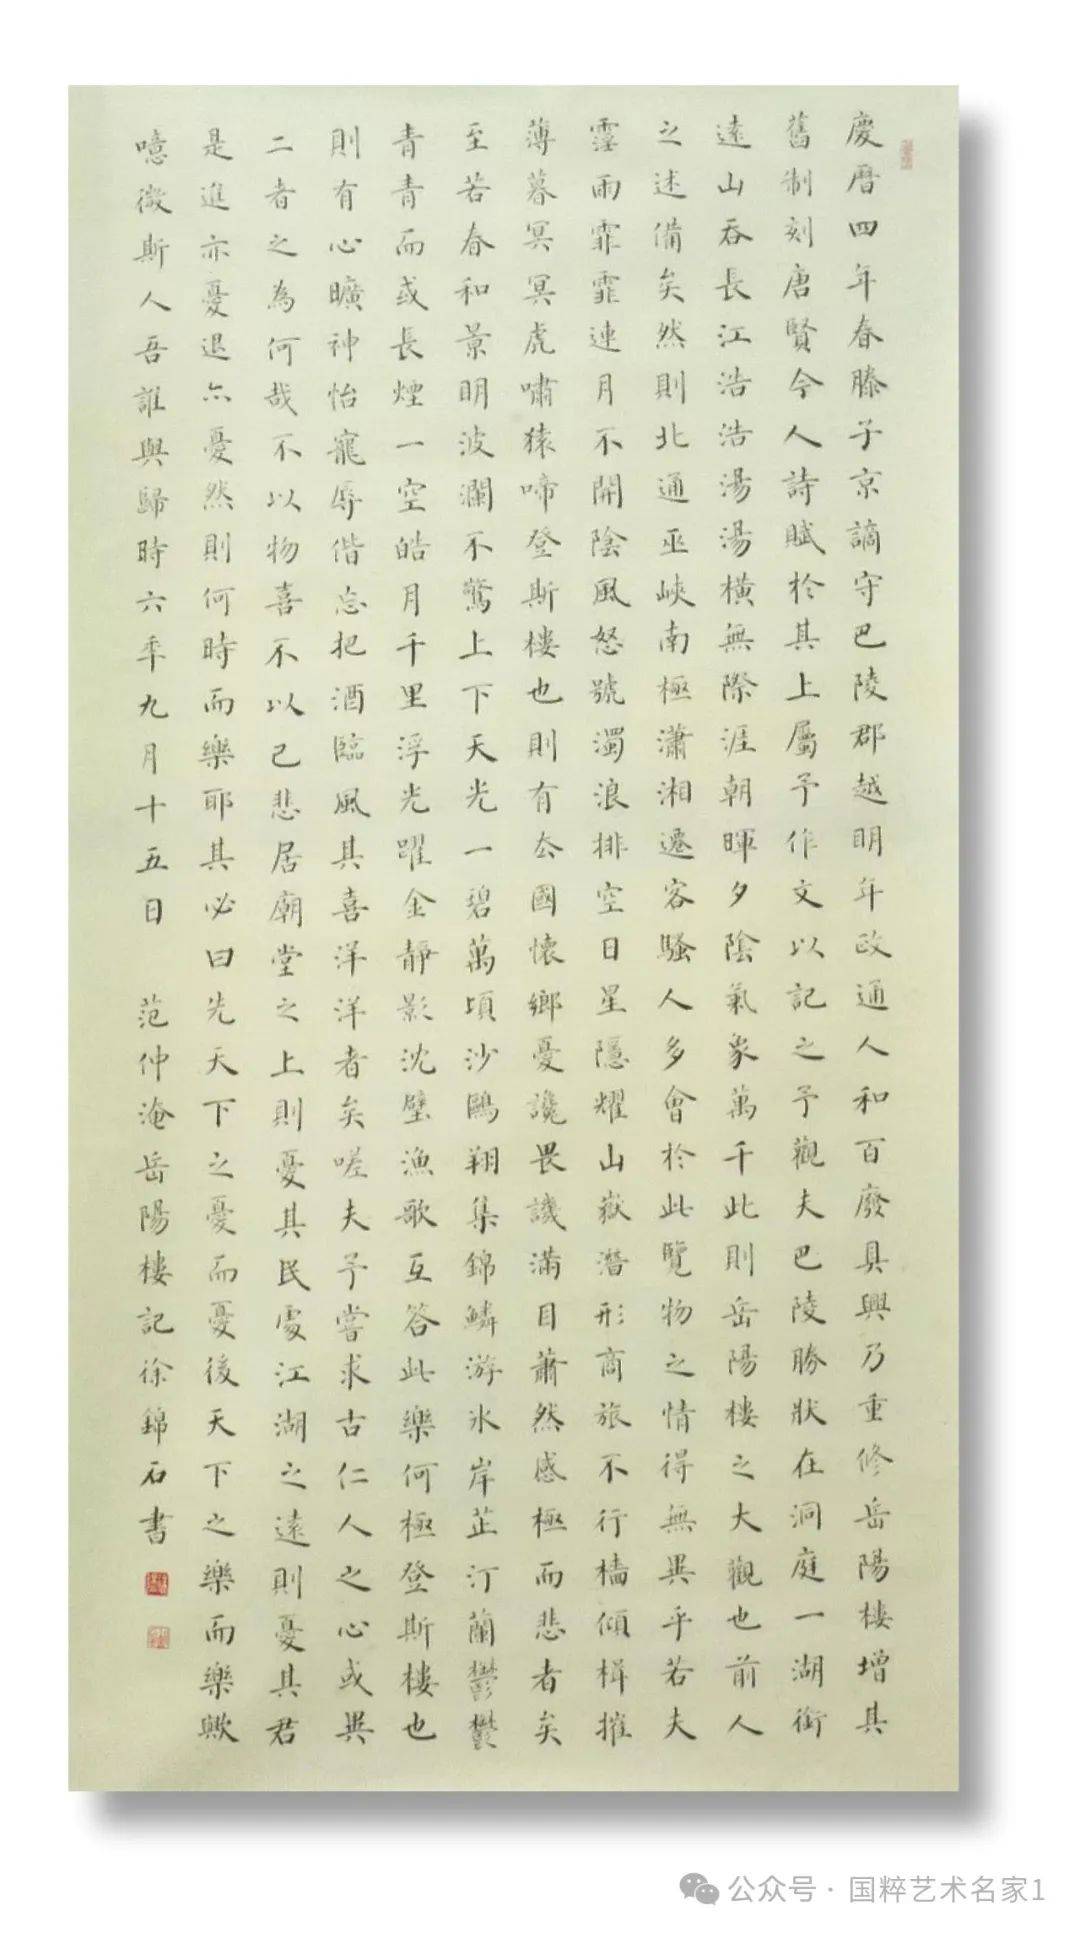 慶曆四年春滕子京謫守巴陵郡越明年政通人和百廢具興乃重修岳陽樓增其
舊制刻唐賢今人詩賦於其上屬予作文以記之予觀夫巴陵勝狀在洞庭一湖銜
遠山吞長江浩浩湯湯橫無際涯朝暉夕陰氣象萬千此則岳陽樓之大觀也前人
之述備矣然則北通巫峽南極瀟湘遷客騷人多會於此覽物之情得無異乎若夫
霪雨霏霏連月不開陰風怒號濁浪排空日星隱耀山嶽潛形商旅不行檣傾楫摧
薄暮冥冥虎嘯猿啼登斯樓也則有去國懷鄉憂讒畏譏滿目蕭然感極而悲者矣
至若春和景明波瀾不驚上下天光一碧萬頃沙鷗翔集錦鱗游泳岸芷汀蘭鬱鬱
青青而或長煙一空皓月千里浮光躍金靜影沈璧漁歌互答此樂何極登斯樓也
則有心曠神怡寵辱偕忘把酒臨風其喜洋洋者矣嗟夫予嘗求古仁人之心或異
二者之為何哉不以物喜不以己悲居廟堂之上則憂其民處江湖之遠則憂其君
是進亦憂退亦憂然則何時而樂耶其必曰先天下之憂而憂後天下之樂而樂歟
噫微斯人吾誰與歸時六年九月十五日 范仲淹岳陽樓記徐錦石書
公众号·国粹艺术名家1